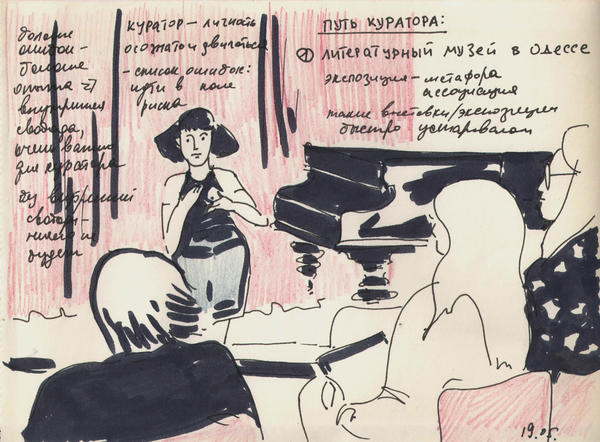 больше
ошибок –
больше
опыта =>
внутренняя
свобода,
очень важно
для куратора
Без внутренней
свободы –
ничего не
будет
куратор – личность
осознато и двигаться
– список ошибок:
идти в поле
риска
ПУТЬ КУРАТОРА:
① ЛИТЕРАТУРНЫЙ МУЗЕЙ В ОДЕССЕ
экспозиция – метафора
ассоциация
такие выставки/экспозиции
быстро устаревают
19.05.